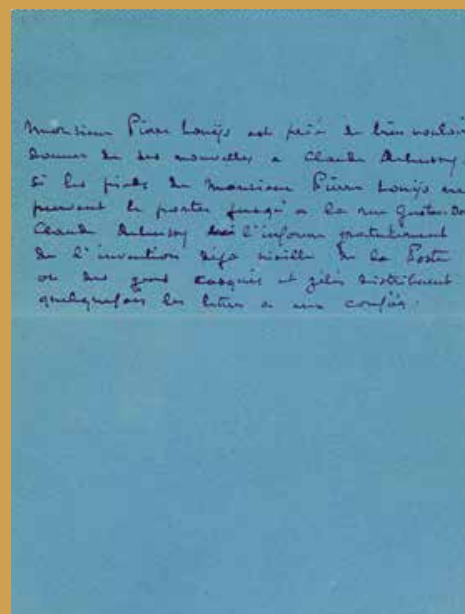 Monsieur Pierre Louÿs est prié de bien vouloir
donner de ses nouvelles à Claude Debussy
Si les pieds de Monsieur Pierre Louÿs ne
peuvent le porter jusqu'à la rue Gustave Do
Claude Debussy l'informe gratuitement
de l'invention déjà vieille de la Poste
où des gens casqués et zélés distribuent
quelquefois les lettres à eux confiées.